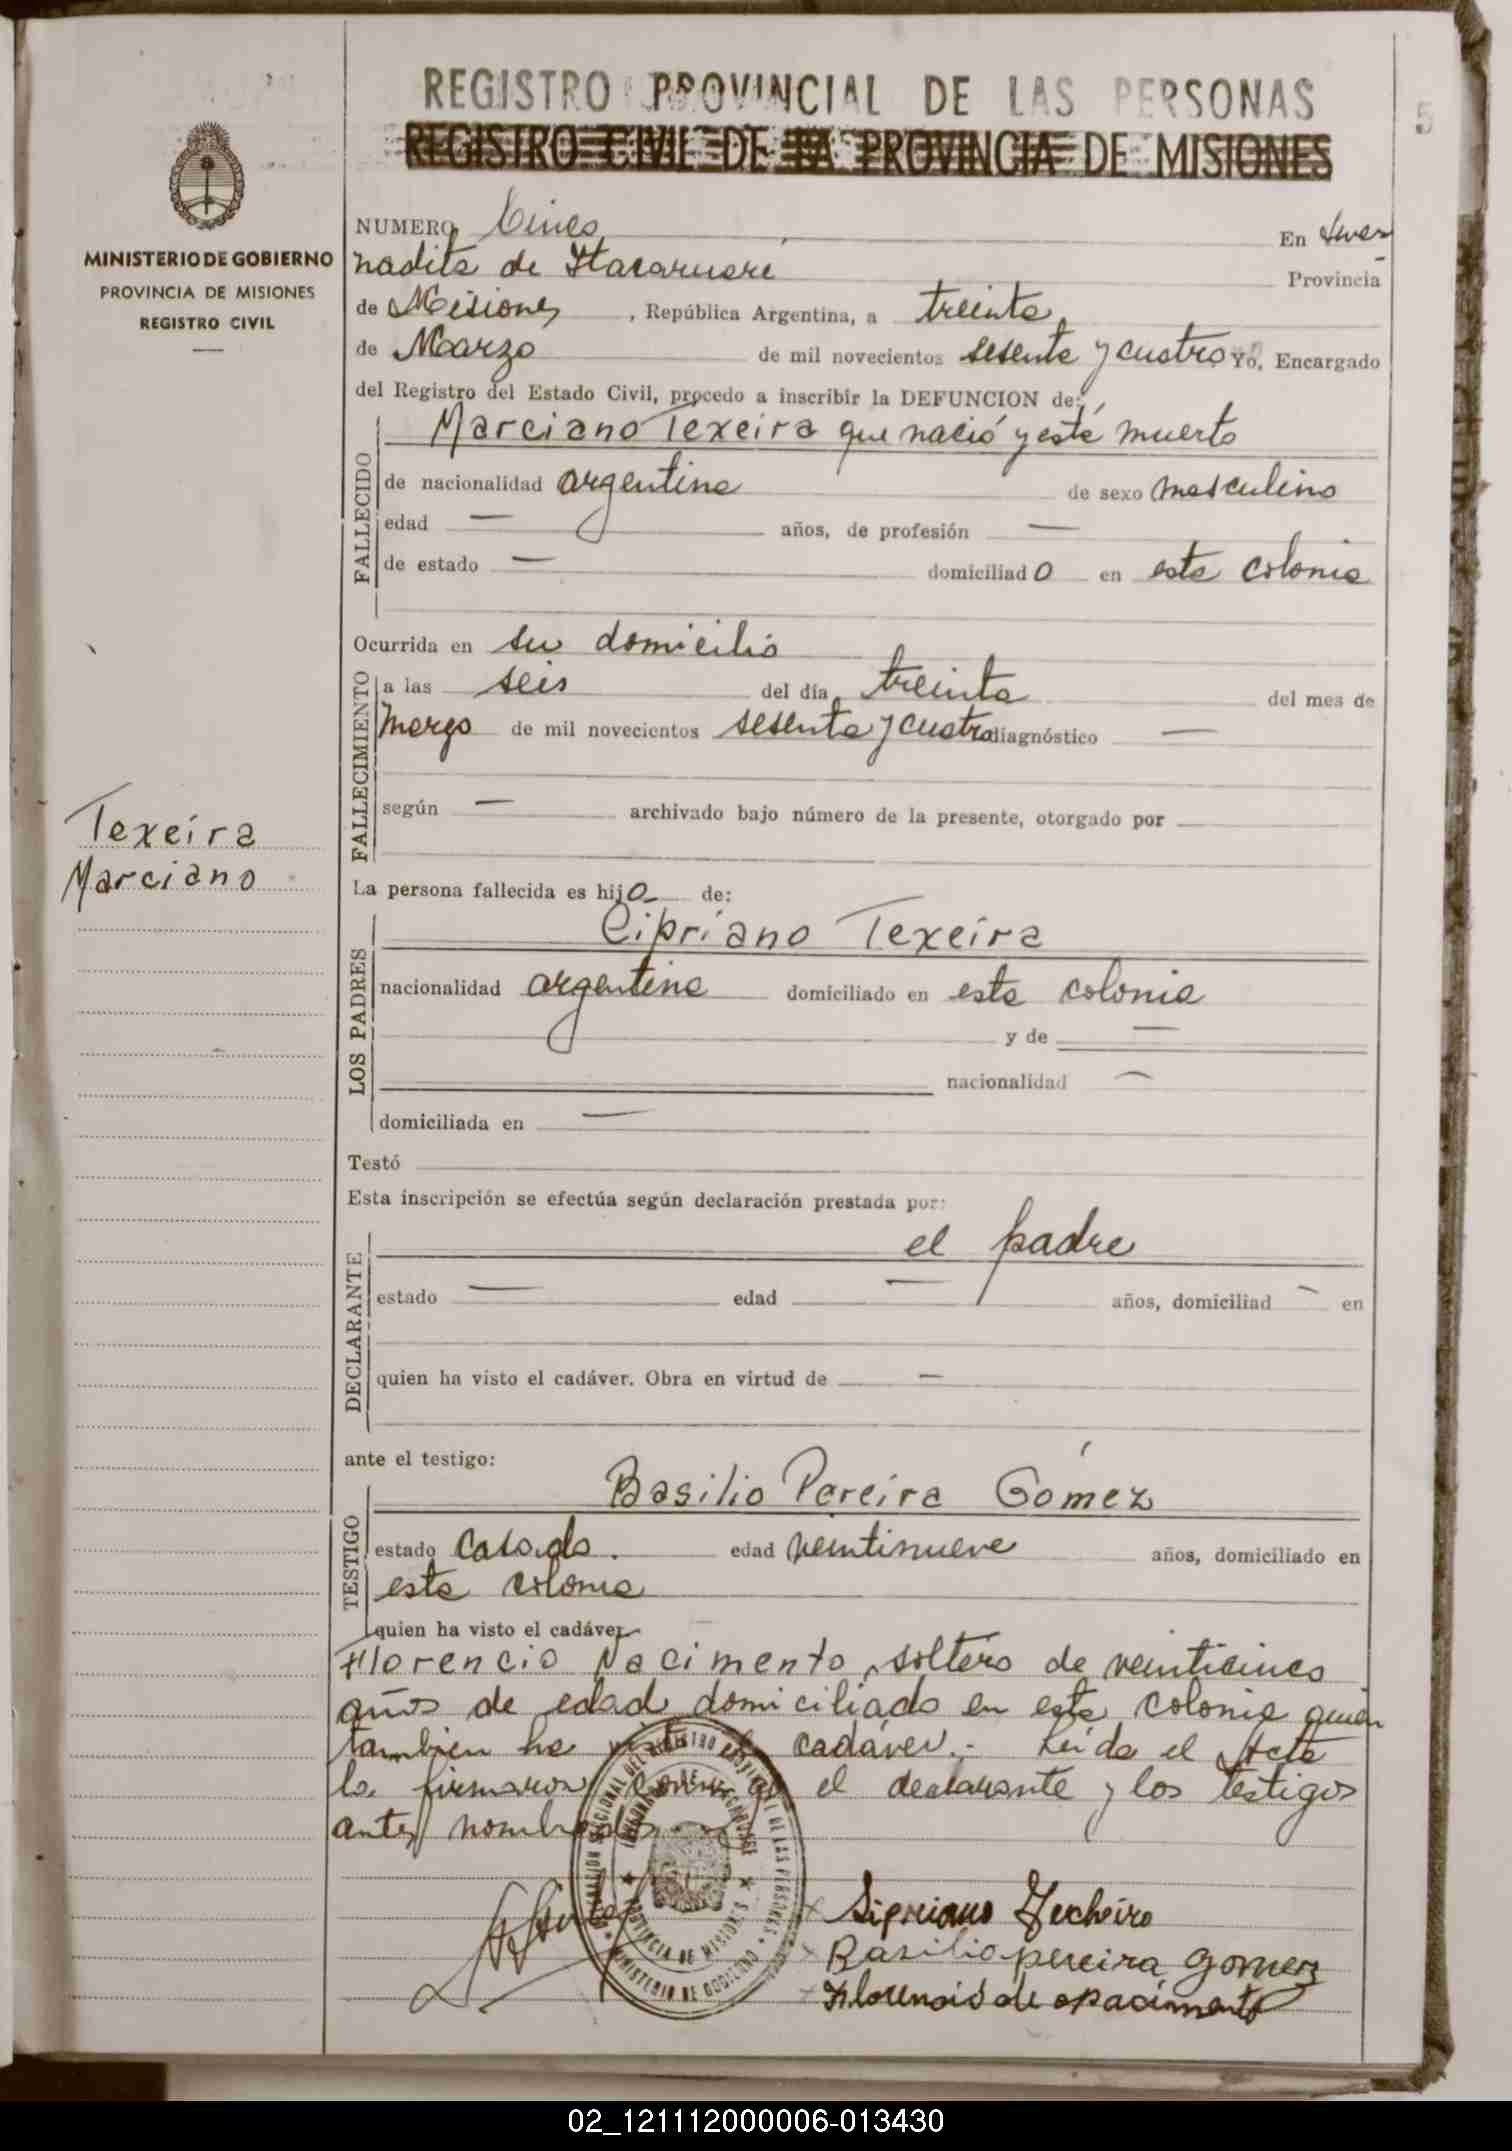 REGISTRO PROVINCIAL DE LAS PERSONAS
REGISTRO CIVIL DE LA PROVINCIA DE MISIONES
5
MINISTERIO DE GOBIERNO
PROVINCIA DE MISIONES
REGISTRO CIVIL
NUMERO Cinco En Inver
nadita de Itacaruaré Provincia
de Misiones, República Argentina, a treinta
de Marzo de mil novecientos sesenta y cuatro Yo, Encargado
del Registro del Estado Civil, procedo a inscribir la DEFUNCION de:
Marciano Texeira que nació y está muerto
FALLECIDO
de nacionalidad argentina de sexo masculino
edad — años, de profesión —
de estado — domiciliado en esta colonia
Ocurrida en su domicilio
FALLECIMIENTO
a las seis del día treinta del mes de
marzo de mil novecientos sesenta y cuatro diagnóstico —
según — archivado bajo número de la presente, otorgado por
Texeira
Marciano
La persona fallecida es hijo de:
LOS PADRES
Cipriano Texeira
nacionalidad argentina domiciliado en esta colonia
y de —
nacionalidad —
domiciliada en —
Testó
Esta inscripción se efectúa según declaración prestada por:
DECLARANTE
el padre
estado — edad — años, domiciliad — en
quien ha visto el cadáver. Obra en virtud de —
ante el testigo:
TESTIGO
Basilio Pereira Gómez
estado casado. edad veintinueve años, domiciliado en
esta colonia
quien ha visto el cadáver
Florencio Nacimento, soltero de veinticinco
años de edad domiciliado en esta colonia quien
tambien ha visto el cadáver.- Leída el Acta
la firmaron conmigo el declarante y los testigos
antes nombrados
x Sipriano Techeira
x Basilio pereira gomez
x Florencio de nacimento
MINISTERIO DE GOBIERNO
PROVINCIA DE MISIONES
02_121112000006-013430